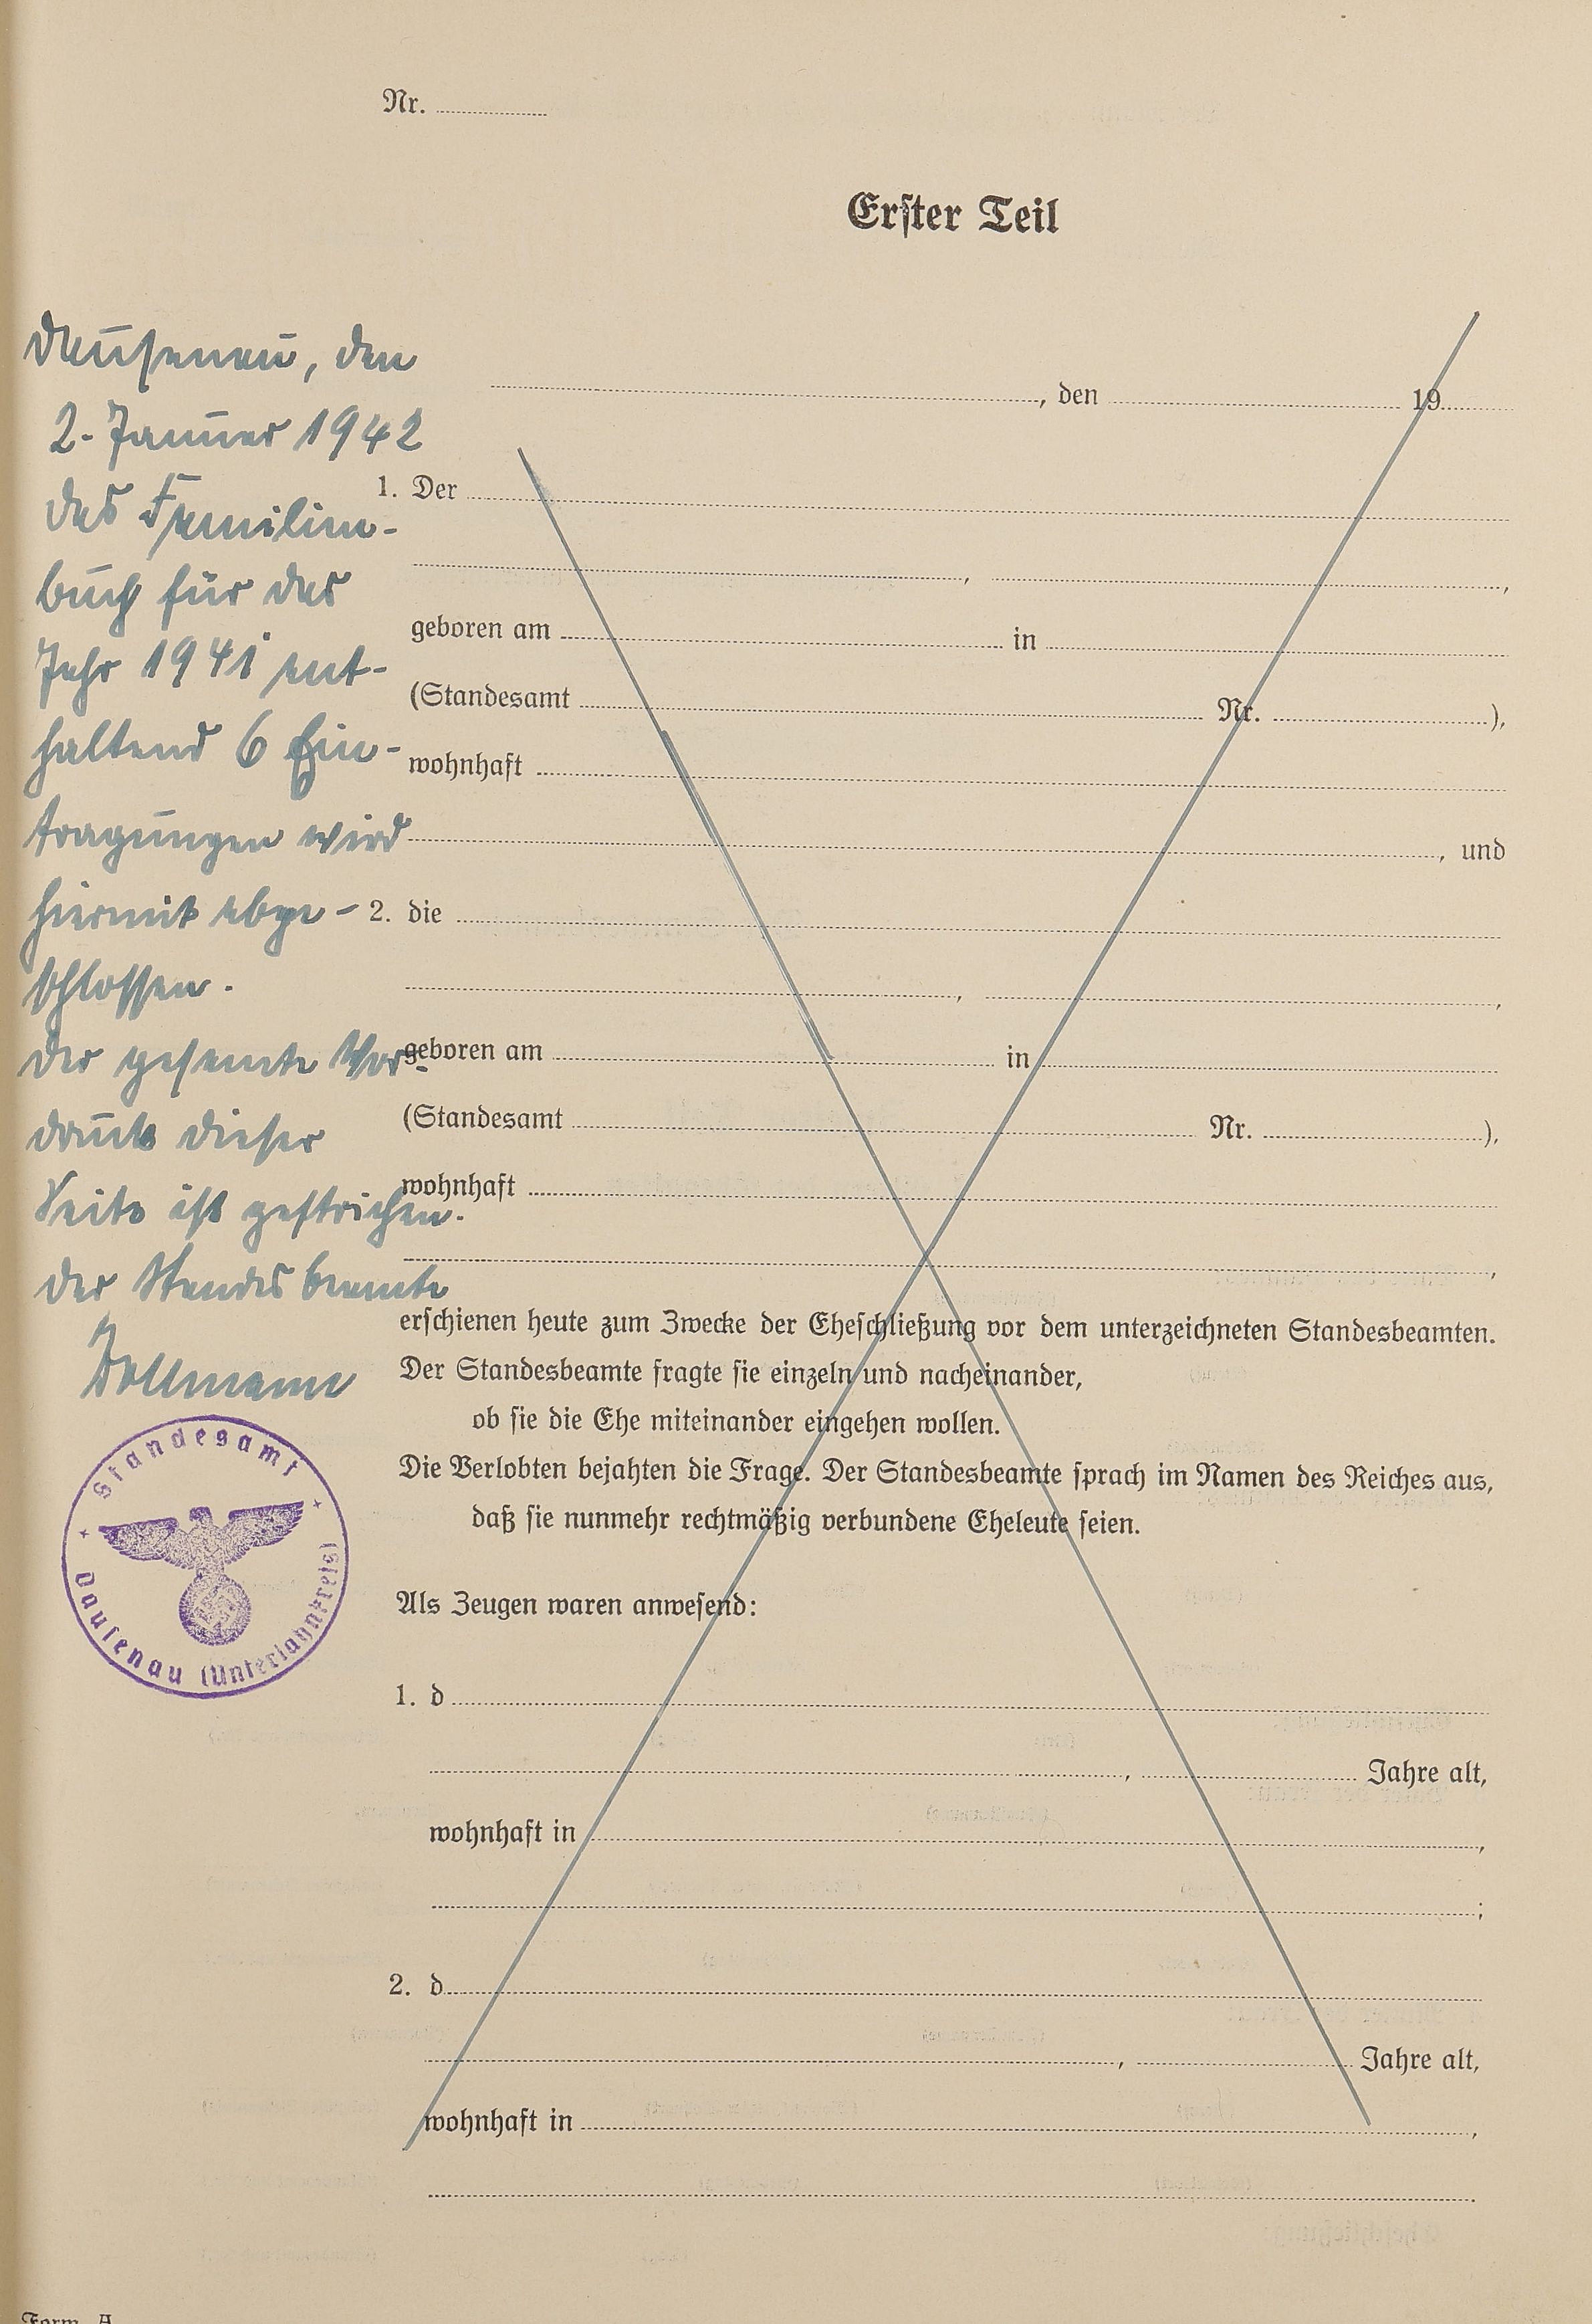 Nr.
Erster Teil
Dausenau, den
2. Januar 1942
Das Familien-
buch für das
Jahr 1941 ent-
haltend 6 Ein-
tragungen wird
hiermit abge-
schlossen.
Der gesamte Vor-
druck dieser
Seite ist gestrichen.
Der Standesbeamte
Standesamt
Dausenau (Unterlahnkreis)
, den 19
1. Der
, ,
geboren am in
(Standesamt Nr. ),
wohnhaft
, und
2. die
, ,
geboren am in
(Standesamt Nr. ),
wohnhaft
,
erschienen heute zum Zwecke der Eheschließung vor dem unterzeichneten Standesbeamten.
Der Standesbeamte fragte sie einzeln und nacheinander,
ob sie die Ehe miteinander eingehen wollen.
Die Verlobten bejahten die Frage. Der Standesbeamte sprach im Namen des Reiches aus,
daß sie nunmehr rechtmäßig verbundene Eheleute seien.
Als Zeugen waren anwesend:
1. d
, Jahre alt,
wohnhaft in ,
;
2. d
, Jahre alt,
wohnhaft in ,
.
Form. A